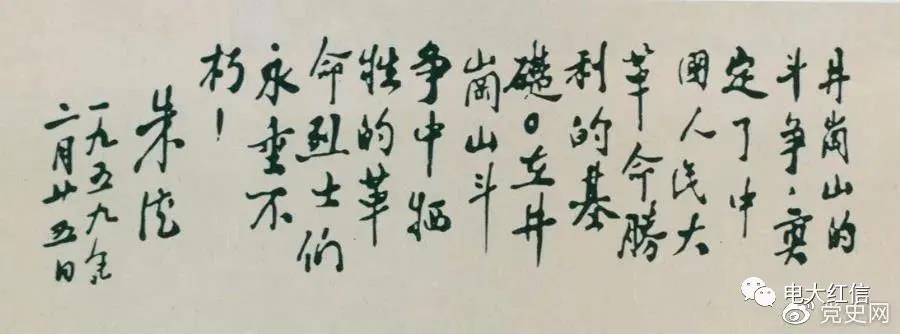 井崗山的
斗争，奠
定了中
國人民大
革命勝
利的基
礎。在井
崗山斗
争中牺
牲的革
命烈士们
永垂不
朽！
朱德
一九五九年
二月廿五日
电大红信
党史网